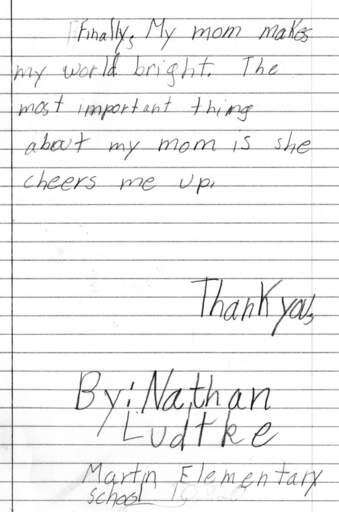 Finally, My mom makes
my world bright. The
most important thing
about my mom is she
cheers me up.
Thank you,
By: Nathan
Ludtke
Martin Elementary
school